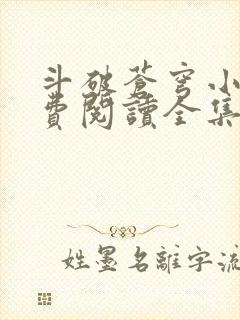 斗破蒼穹小
費閱讀全集
姓墨名離字流